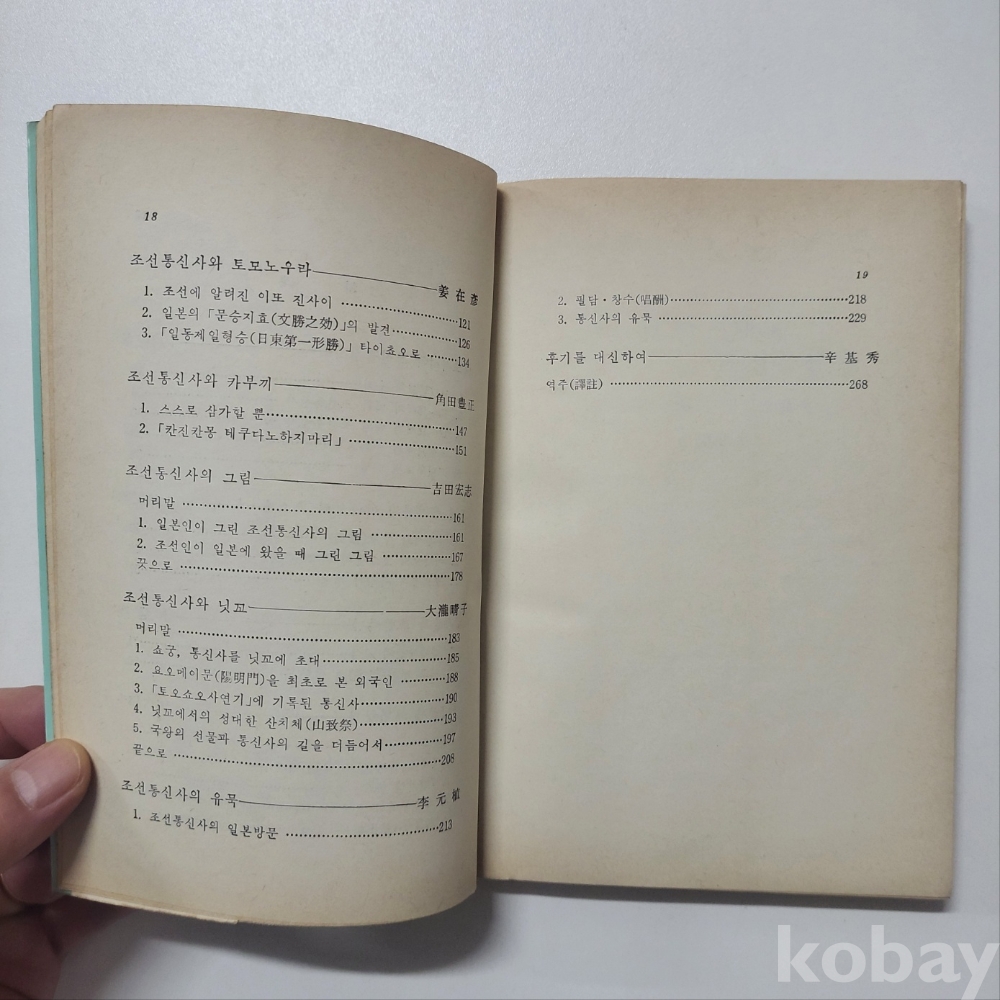 18
조선통신사와 토모노우라 姜在彦
1. 조선에 알려진 이또 진사이 121
2. 일본의 「문승지효(文勝之効)」의 발견 126
3. 「일동제일형승(日東第一形勝)」 타이쵸오로 134
조선통신사와 카부끼 角田豊正
1. 스스로 삼가할 뿐 147
2. 「칸진칸몽 테쿠다노하지마리」 151
조선통신사의 그림 吉田宏志
머리말 161
1. 일본인이 그린 조선통신사의 그림 161
2. 조선인이 일본에 왔을 때 그린 그림 167
끗으로 178
조선통신사와 닛꼬 大瀧晴子
머리말 183
1. 쇼궁, 통신사를 닛꼬에 초대 185
2. 요오메이문(陽明門)을 최초로 본 외국인 188
3. 「토오쇼오사연기」에 기록된 통신사 190
4. 닛꼬에서의 성대한 산치제(山致祭) 193
5. 국왕의 선물과 통신사의 길을 더듬어서 197
끝으로 208
조선통신사의 유묵 李元植
1. 조선통신사의 일본방문 213
19
2. 필담·창수(唱酬) 218
3. 통신사의 유묵 229
후기를 대신하여 辛基秀
역주(譯註) 268
kobay